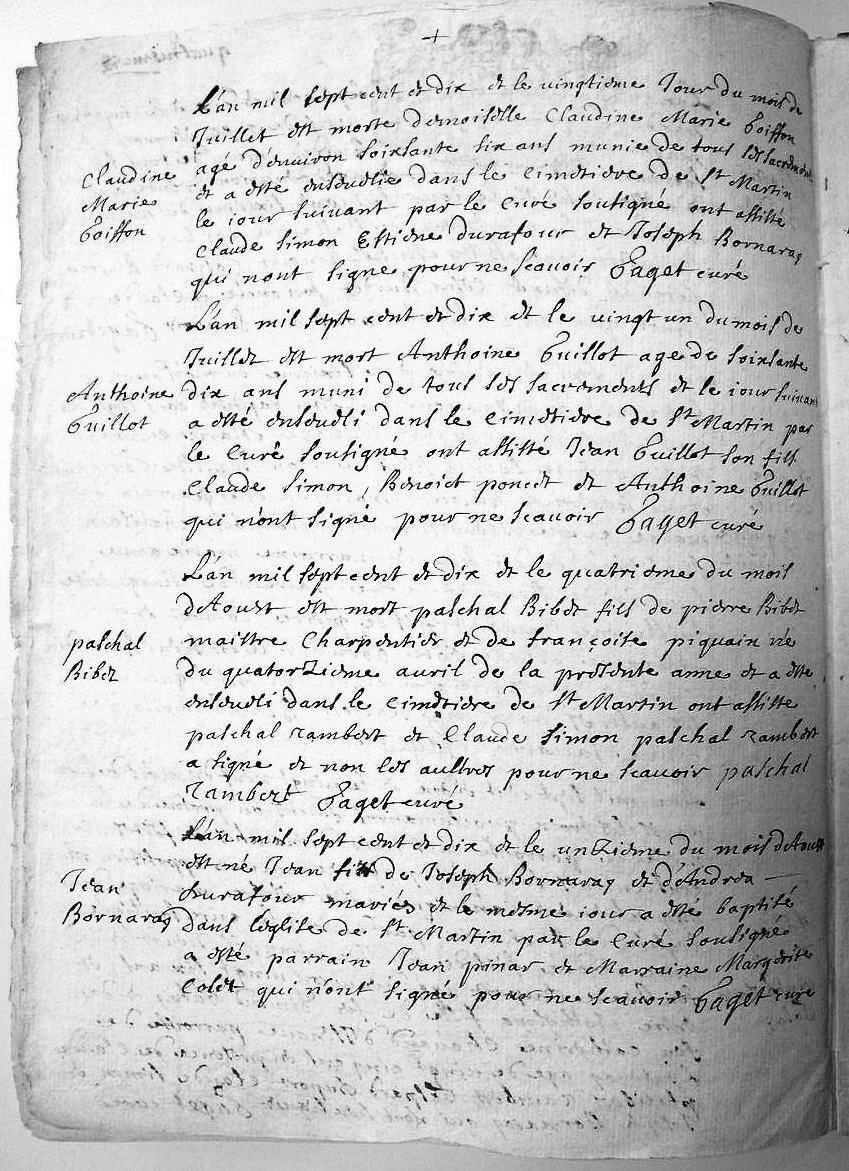 +
L'an mil sept cent et dix et le vingtieme Jour du mois de
Juillet est morte demoiselle Claudine Marie Goiffon
agé d'enuiron soixsante six ans munie de tous les sacremens
et a esté enseuelie dans le cimetiere de St Martin
le iour suiuant par le curé soutigné ont assisté
Claude Simon Estiene durafour et Joseph Bornaray
qui nont signe pour ne scauoir Gaget curé
Claudine
Marie
Goiffon
L'an mil sept cent et dix et le vingt un du mois de
Juillet est mort Anthoine Guillot age de soixsante
dix ans muni de tous les sacrements et le iour suiuant
a esté enseueli dans le cimetiere de St Martin par
le Curé soutigné ont assisté Jean Guillot son fils
Claude Simon, Benoict poncet et Anthoine Guillot
qui n'ont signé pour ne scauoir Gaget curé
Anthoine
Guillot
L'an mil sept cent et dix et le quatrieme du mois
d'Aoust est mort paschal Bibet fils de pierre Bibet
maistre Charpentier et de françoise piquain né
du quatorzieme auril de la presente anne et a esté
enseueli dans le cimetiere de St Martin ont assisté
paschal rambert et Claude Simon paschal rambert
a signé et non les aultres pour ne scauoir paschal
rambert Gaget curé
paschal
Bibet
L'an mil sept cent et dix et le unzieme du mois d'Aoust
est né Jean fils de Joseph Bornaray et d'Andrea
Durafour mariés et le mesme iour a esté baptisé
dans l'eglise de St Martin par le Curé soutigné
a esté parrain Jean pinar et Marraine Margerite
Colet qui n'ont signé pour ne scauoir Gaget curé
Jean
Bornaray